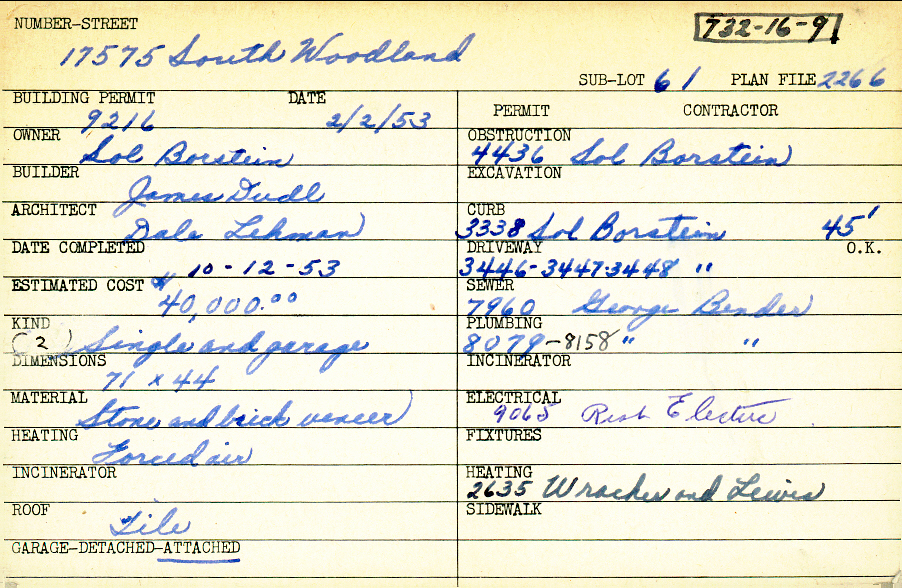 NUMBER-STREET
732-16-9
17575 South Woodland
SUB-LOT 61 PLAN FILE 2266
BUILDING PERMIT DATE
9216 2/2/53
OWNER
Sol Borstein
BUILDER
James Dudl
ARCHITECT
Dale Lehman
DATE COMPLETED
10-12-53
ESTIMATED COST $
40,000.00
KIND
(2) Single and garage
DIMENSIONS
71 x 44
MATERIAL
Stone and brick veneer
HEATING
Forced air
INCINERATOR
ROOF
Tile
GARAGE-DETACHED-ATTACHED
PERMIT CONTRACTOR
OBSTRUCTION
4436 Sol Borstein
EXCAVATION
CURB
3338 Sol Borstein 45'
DRIVEWAY O.K.
3446-3447-3448 "
SEWER
7960 George Bender
PLUMBING
8079-8158 " "
INCINERATOR
ELECTRICAL
9065 Electric
FIXTURES
HEATING
2635 and Lewis
SIDEWALK